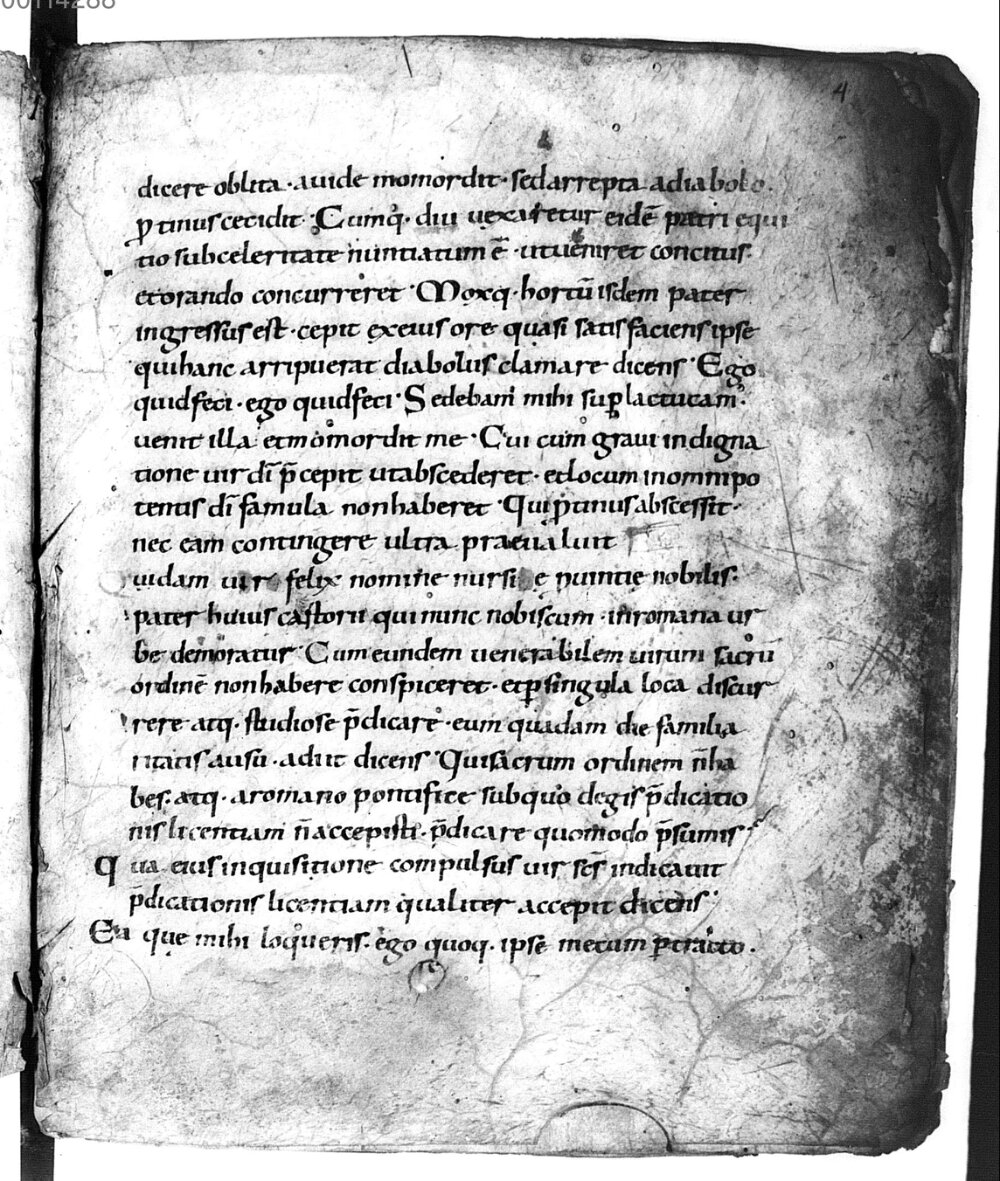 00114288
4
dicere oblita · auide momordit · sed arrepta a diabolo.
p̄tinus cecidit · Cumq· diu uexaretur eidē patri equi
tio sub celeritate nuntiatum ē · ut ueniret concitus.
et orando concurreret · Moxq· hortū isdem pater
ingressus est · cepit ex eius ore quasi satisfaciens ipse
qui hanc arripuerat diabolus clamare dicens · Ego
quid feci · ego quid feci · Sedebam mihi sup lactucam ·
uenit illa et momordit me · Cui cum graui indigna
tione uir dī p̄cepit ut abscederet · et locum in omnipo
tentis dī famula non haberet · Qui p̄tinus abscessit ·
nec eam contingere ultra praeualuit
uidam uir felix nomine nursi e ꝓuintie nobilis.
pater huius castorii qui nunc nobiscum in romana ur
be demoratur · Cum eundem uenerabilem uirum sacrū
ordinē non habere conspiceret · et p singula loca discur
rere atq· studiose p̄dicare · eum quadam die familia
ritatis ausu · adiit dicens · Qui sacrum ordinem n̄ ha
bes. atq· a romano pontifice sub quo degis p̄dicatio
nis licentiam n̄ accepisti · p̄dicare quomodo p̄sumis
Qua eius inquisitione compulsus uir scs̄ indicauit
p̄dicationis licentiam qualiter accepit dicens ·
Ea quę mihi loqueris. ego quoq· ipse mecum p̄tracto.